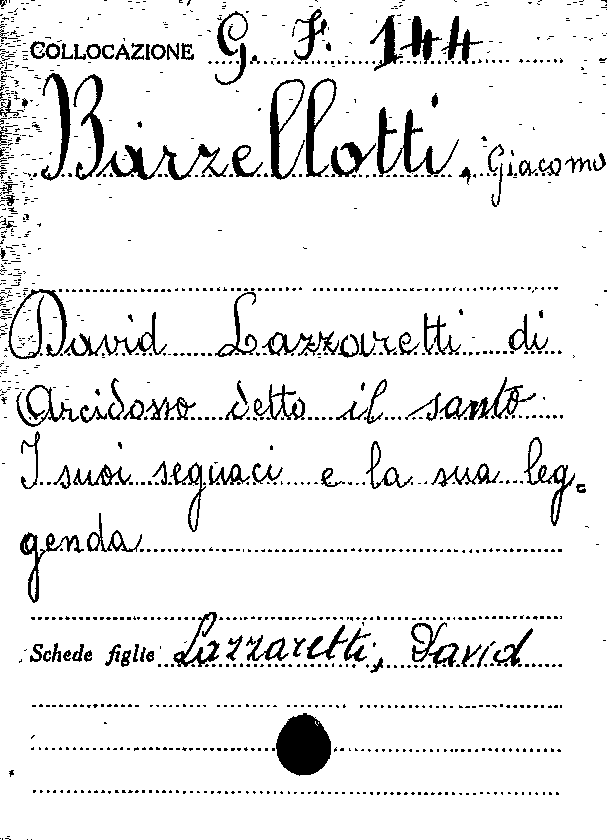 COLLOCAZIONE G. F. 144
Barzellotti, Giacomo
David Lazzaretti di
Arcidosso detto il santo
I suoi seguaci e la sua leg=
genda
Schede figlie Lazzaretti, David